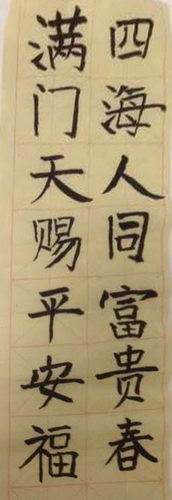 四海人同富贵春
满门天赐平安福